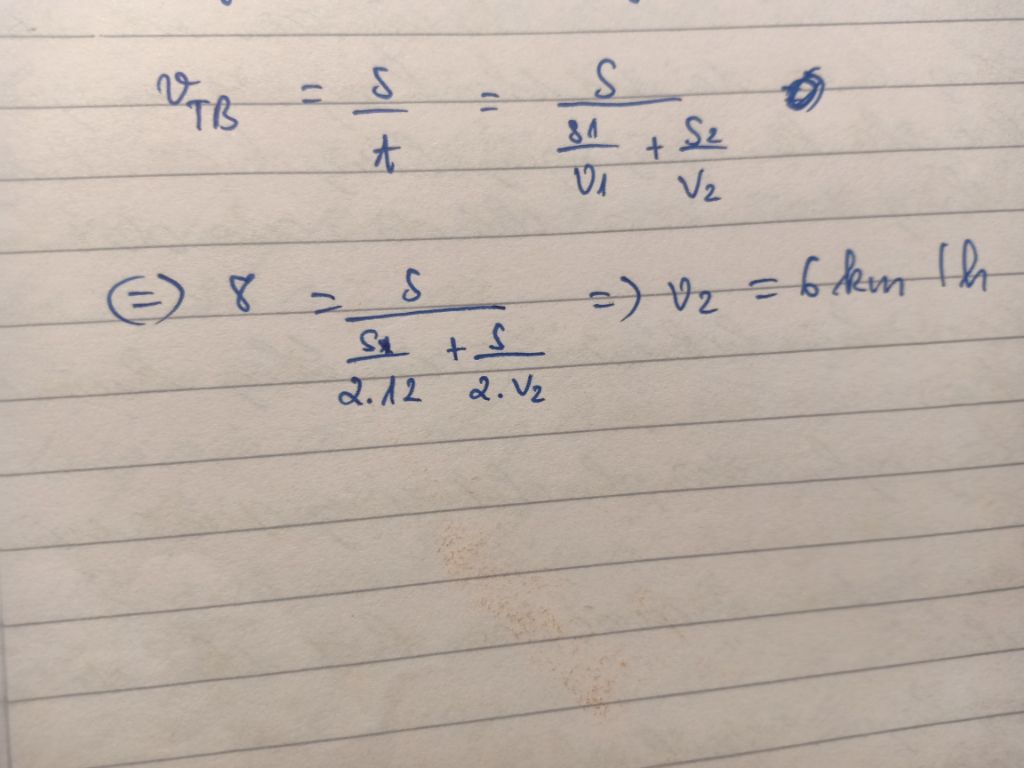 v_TB = S/t = S/(S1/V1 + S2/V2)
(=) 8 = S/(S/2.12 + S/2.V2) =) V2 = 6 km/h